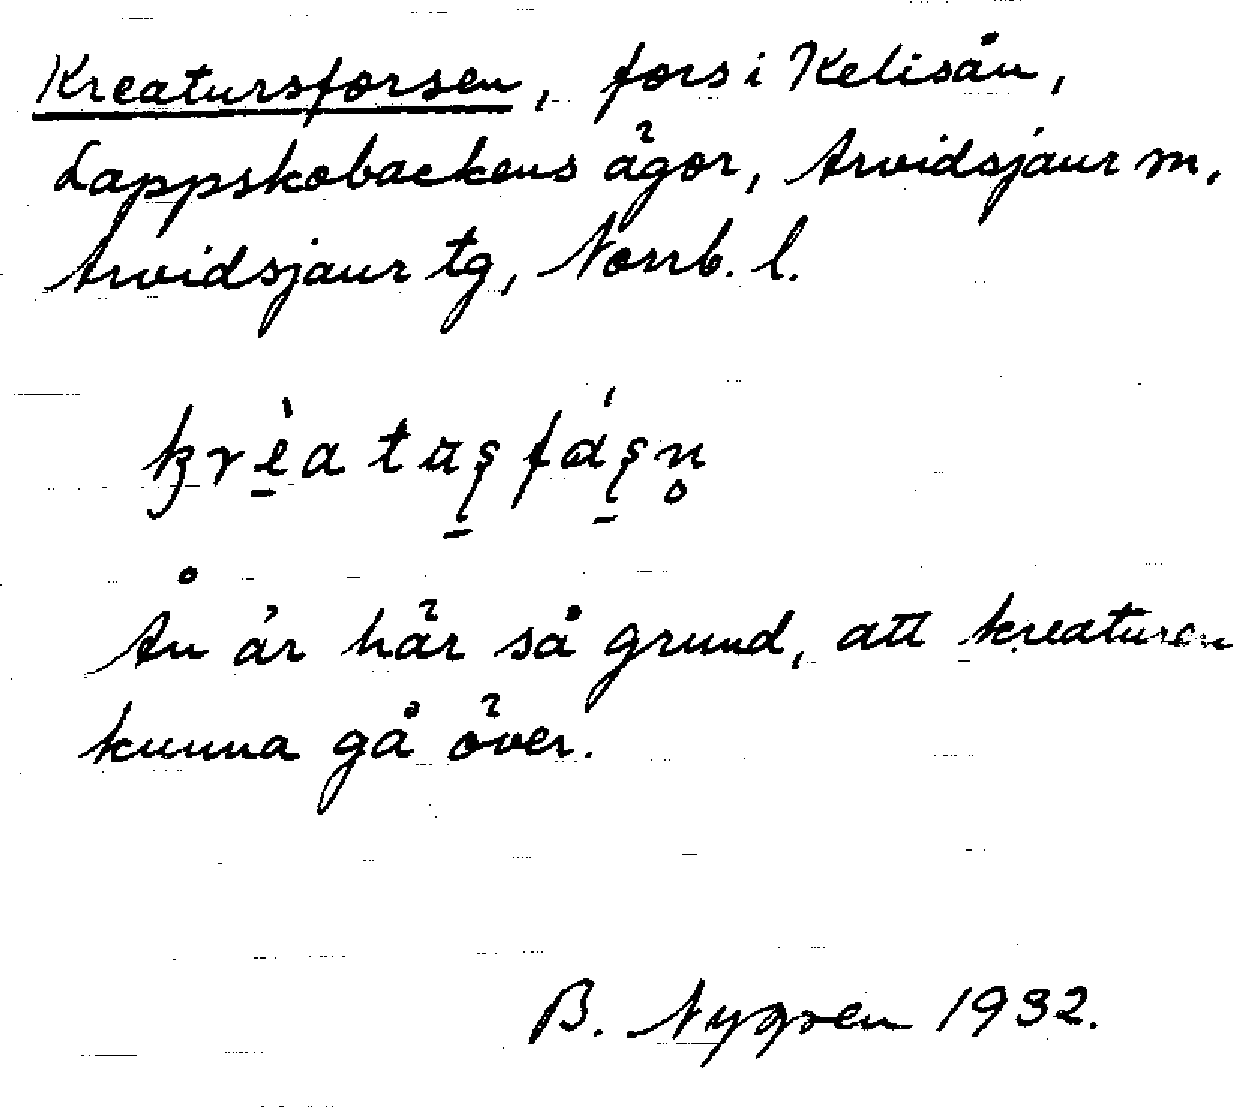 Kreatursforsen, fors i Kelisån,
Lappskobackens ägor, Arvidsjaur sn,
Arvidsjaur tg, Norrb. l.
Ån är här så grund, att kreaturen
kunna gå över.
B. Nygren 1932.